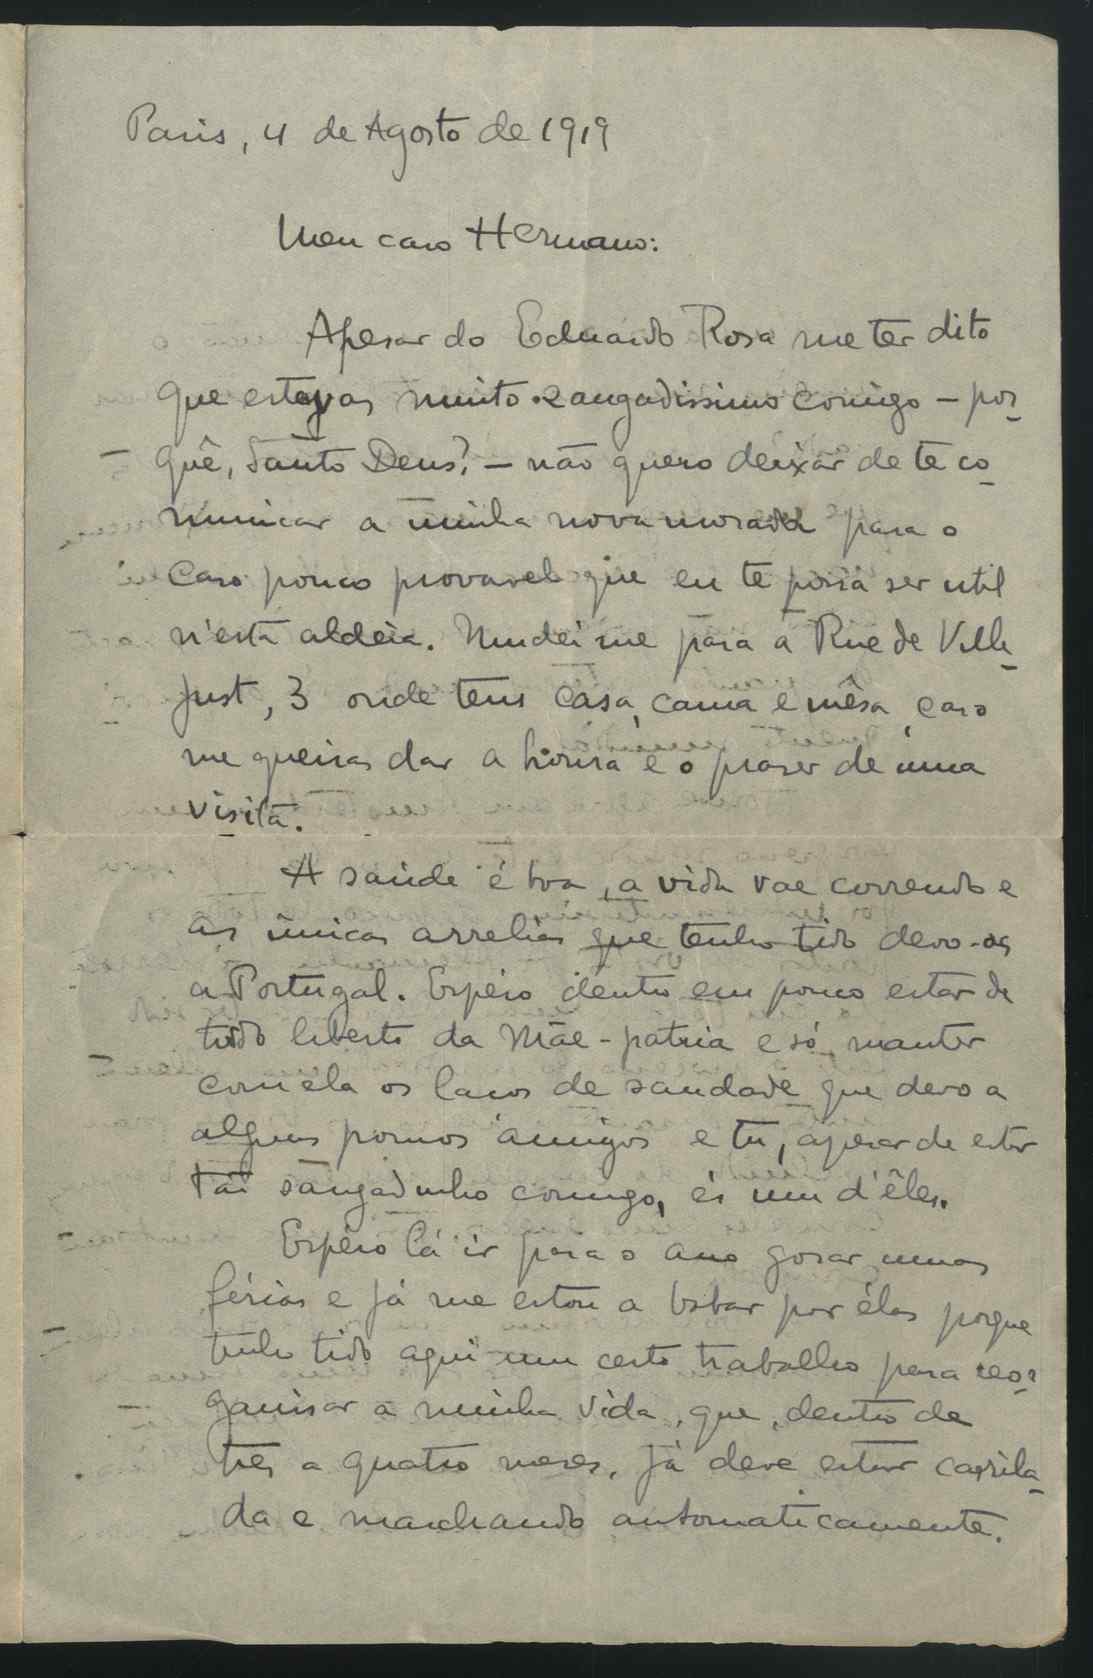 Paris, 4 de Agosto de 1919
Meu caro Hermano:
Apesar do Eduardo Rosa me ter dito
que estavas muito zangadissimo comigo – por-
quê, Santo Deus? – não quero deixar de te co-
municar a minha nova morada para o
caso pouco provavel que eu te possa ser util
n'esta aldeia. Mudei me para a Rue de Ville-
just, 3 onde tens casa, cama e mêsa, caso
me queiras dar a honra e o praser de uma
visita.
A saúde é boa, a vida vae correndo e
as únicas arrelias que tenho tido devo-as
a Portugal. Espéro dentro em pouco estar de
todo liberto da Mãe-patria e só manter
com ela os laços de saudade que devo a
alguns poucos amigos e tu, apesar de estar
tão sangadinho comigo, és um d'êles.
Espéro lá ir para o ano gosar umas
férias e já me estou a babar por élas porque
tenho tido aqui um certo trabalho para reor-
ganisar a minha vida, que, dentro de
tres a quatro meses, já deve estar carrila-
da e marchando automaticamente.